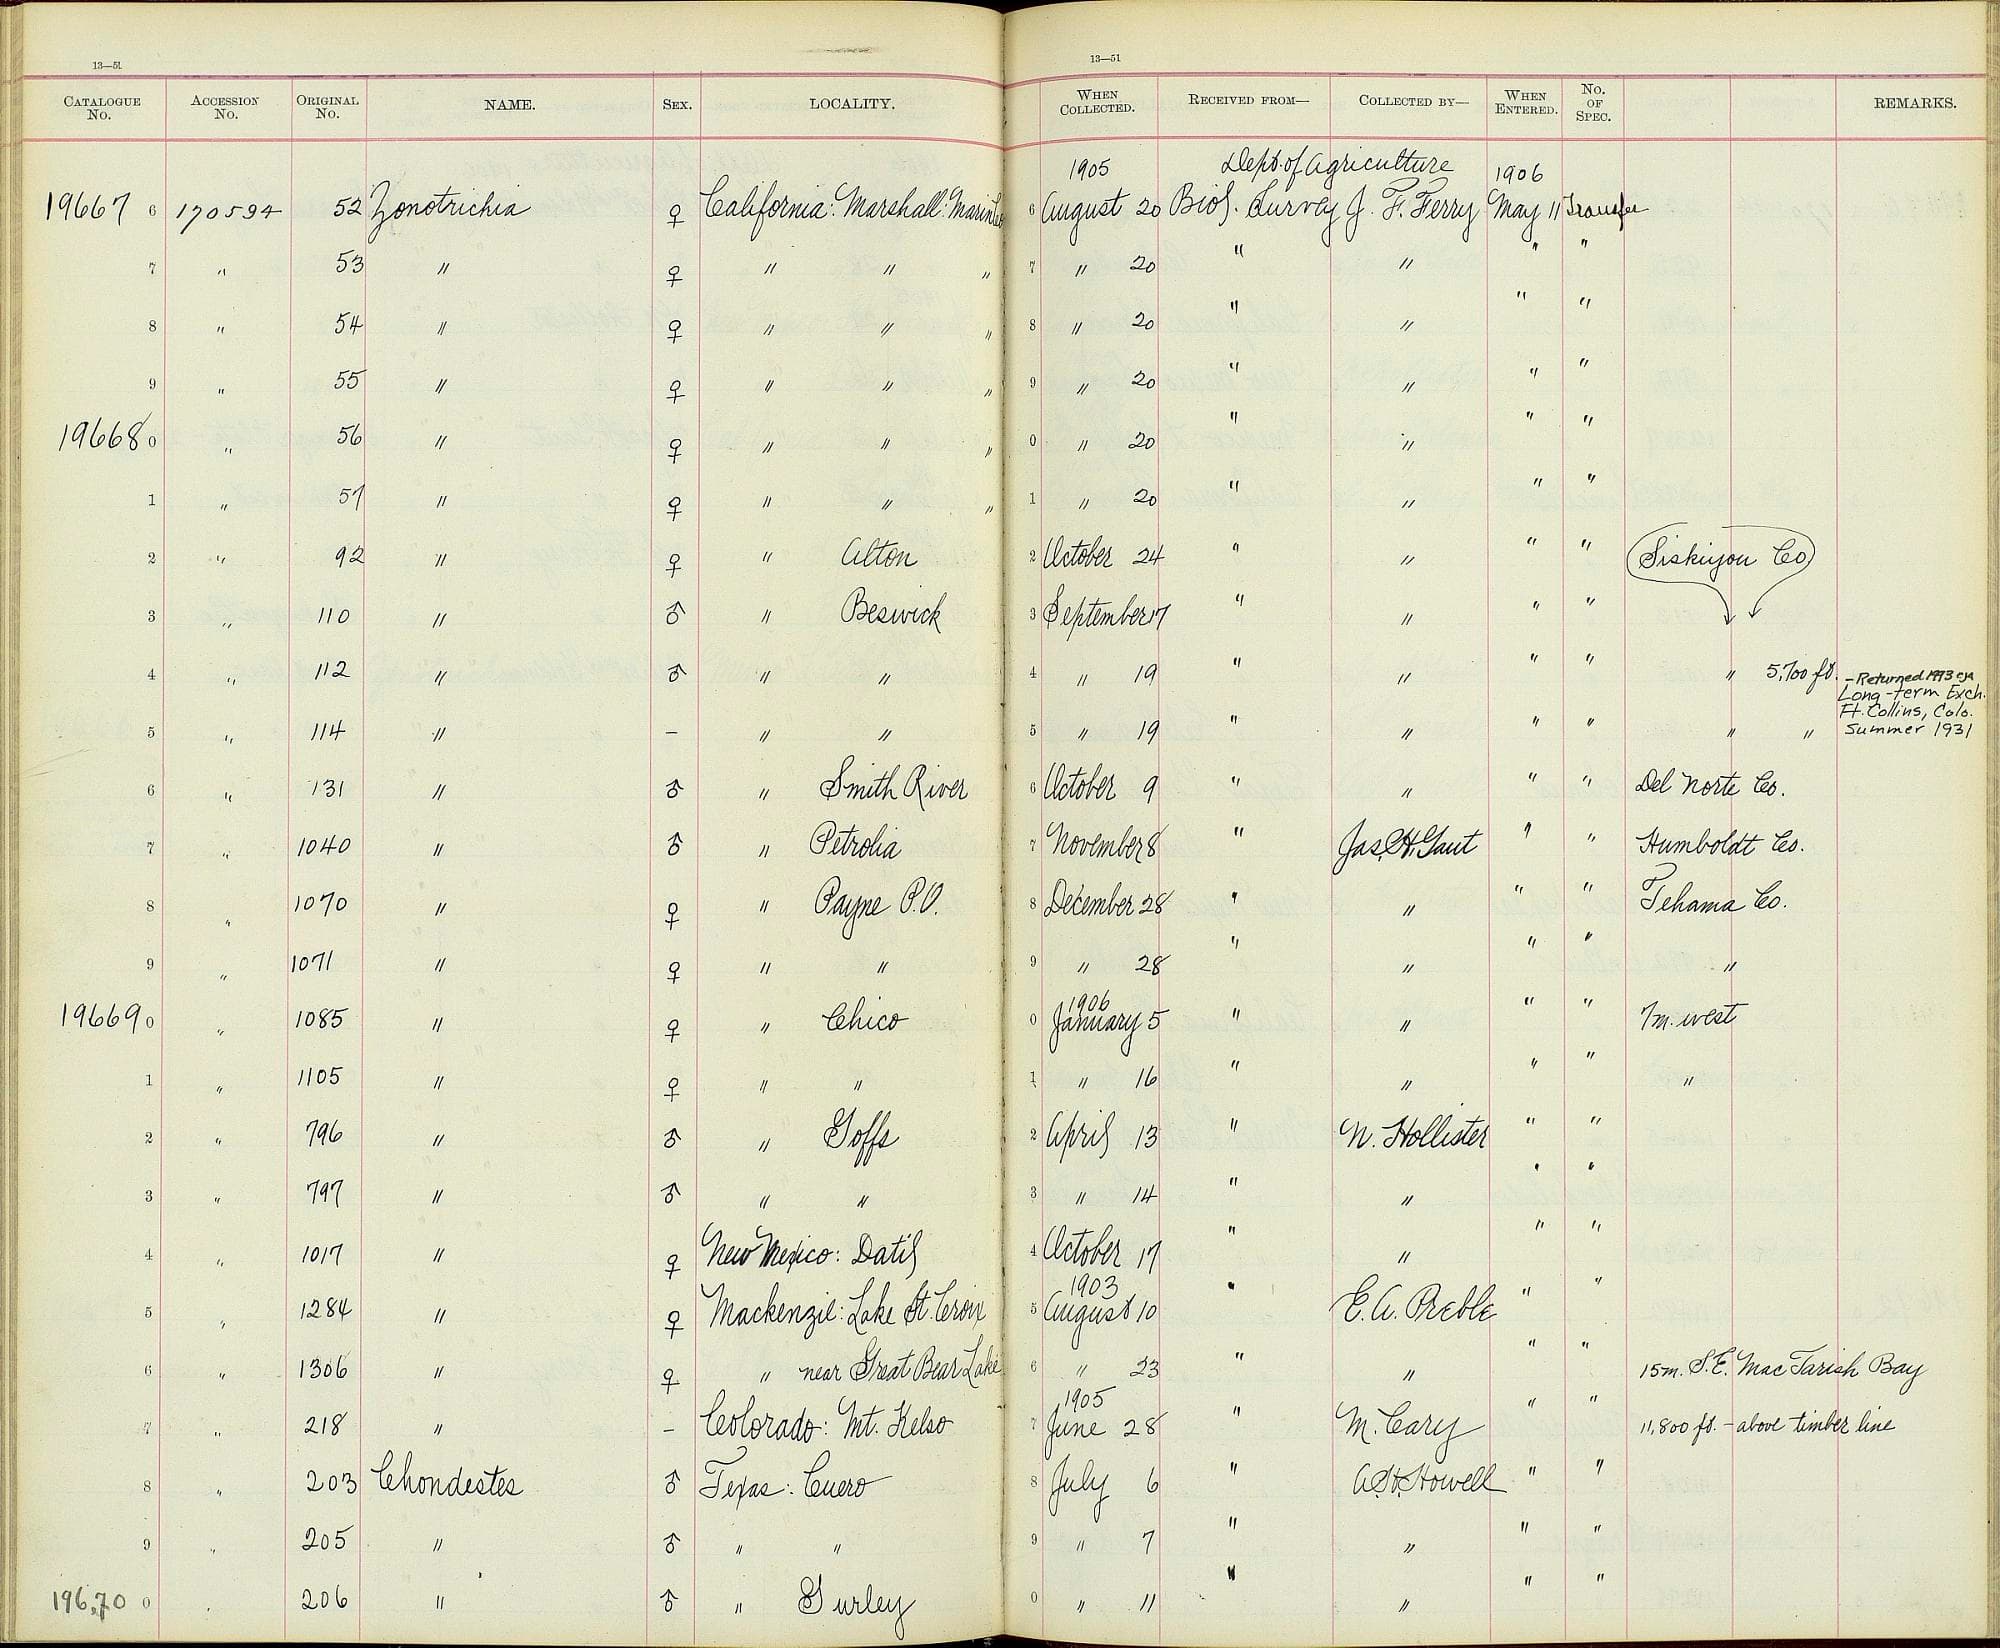 13—51
13—51
CATALOGUE NO. ACCESSION NO. ORIGINAL NO. NAME. SEX. LOCALITY. WHEN COLLECTED. RECEIVED FROM— COLLECTED BY— WHEN ENTERED. NO. OF SPEC. REMARKS.
1905 Dept. of Agriculture 1906
19667 6 170594 52 Zonotrichia ♀ California: Marshall: Marin Co 6 August 20 Biol. Survey J. F. Ferry May 11 Transfer
7 " 53 " ♀ " " " 7 " 20 " " " "
8 " 54 " ♀ " " " 8 " 20 " " " "
9 " 55 " ♀ " " " 9 " 20 " " " "
19668 0 " 56 " ♀ " " " 0 " 20 " " " "
1 " 57 " ♀ " " " 1 " 20 " " " "
2 " 92 " ♀ " Alton 2 October 24 " " " " Siskiyou Co
3 " 110 " ♂ " Beswick 3 September 17 " " " "
4 " 112 " ♂ " " 4 " 19 " " " " " 5,700 ft. - Returned 1973 ex
Long-term Exch.
Ft. Collins, Colo.
5 " 114 " – " " 5 " 19 " " " " " " Summer 1931
6 " 131 " ♂ " Smith River 6 October 9 " " " " Del Norte Co.
7 " 1040 " ♂ " Petrolia 7 November 8 " Jas. H. Gaut " " Humboldt Co.
8 " 1070 " ♀ " Payne P.O. 8 December 28 " " " " Tehama Co.
9 " 1071 " ♀ " " 9 " 28 " " " " "
1906
19669 0 " 1085 " ♀ " Chico 0 January 5 " " " " 7m. west
1 " 1105 " ♀ " " 1 " 16 " " " " "
2 " 796 " ♂ " Goffs 2 April 13 " N. Hollister " "
3 " 797 " ♂ " " 3 " 14 " " " "
4 " 1017 " ♀ New Mexico: Datil 4 October 17 " " " "
1903
5 " 1284 " ♀ Mackenzie: Lake St. Croix 5 August 10 " E. A. Preble " "
6 " 1306 " ♀ " near Great Bear Lake 6 " 23 " " " " 15m. S.E. MacTarish Bay
1905
7 " 218 " – Colorado: Mt. Kelso 7 June 28 " M. Cary " " 11,800 ft. – above timber line
8 " 203 Chondestes ♂ Texas: Cuero 8 July 6 " A. H. Howell " "
9 " 205 " ♂ " " 9 " 7 " " " "
19670 0 " 206 " ♂ " Gurley 0 " 11 " " " "